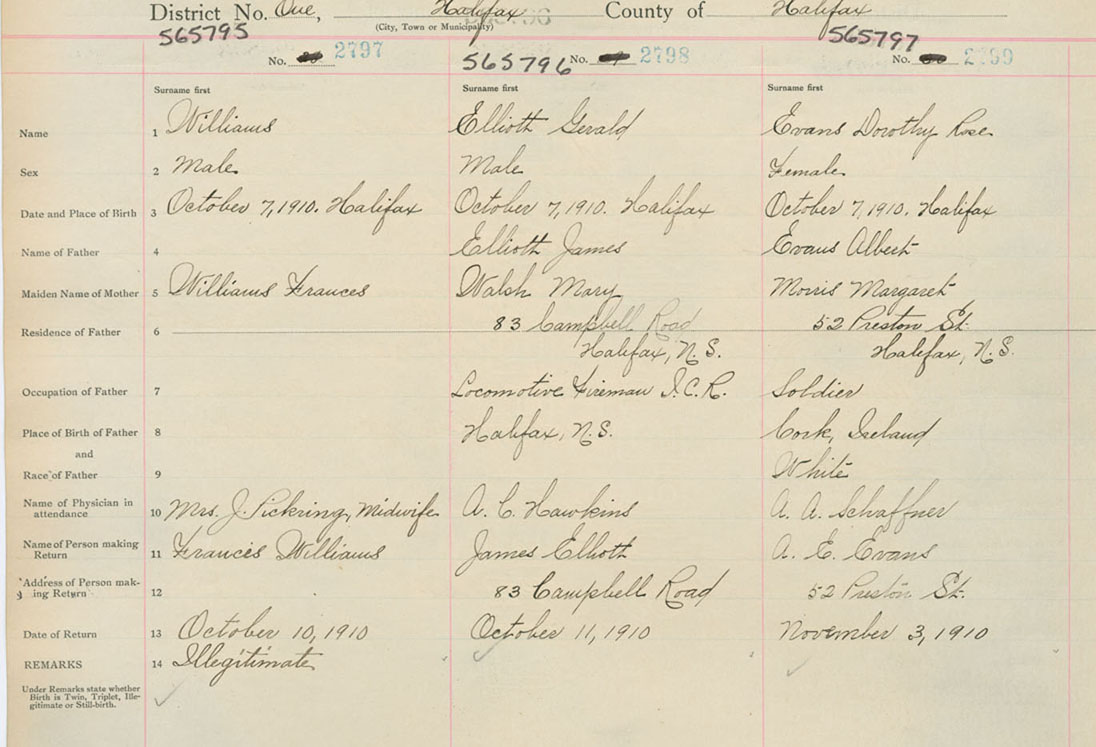 District No. One, Halifax County of Halifax
(City, Town or Municipality)
565795 565797
No. 2797 565796 No. 2798 No. 2799
Surname first Surname first Surname first
Name 1 Williams Elliott Gerald Evans Dorothy Rose
Sex 2 Male Male Female
Date and Place of Birth 3 October 7, 1910. Halifax October 7, 1910. Halifax October 7, 1910. Halifax
Name of Father 4 Elliott James Evans Albert
Maiden Name of Mother 5 Williams Frances Walsh Mary Morris Margaret
Residence of Father 6 83 Campbell Road 52 Preston St.
Halifax, N.S. Halifax, N.S.
Occupation of Father 7 Locomotive Fireman I.C.R. Soldier
Place of Birth of Father 8 Halifax, N.S. Cork, Ireland
and
Race of Father 9 White
Name of Physician in
attendance 10 Mrs. J. Pickring, Midwife A. C. Hawkins A. A. Schaffner
Name of Person making
Return 11 Frances Williams James Elliott A. E. Evans
Address of Person mak-
ing Return 12 83 Campbell Road 52 Preston St.
Date of Return 13 October 10, 1910 October 11, 1910 November 3, 1910
REMARKS 14 Illegitimate
Under Remarks state whether
Birth is Twin, Triplet, Ille-
gitimate or Still-birth.